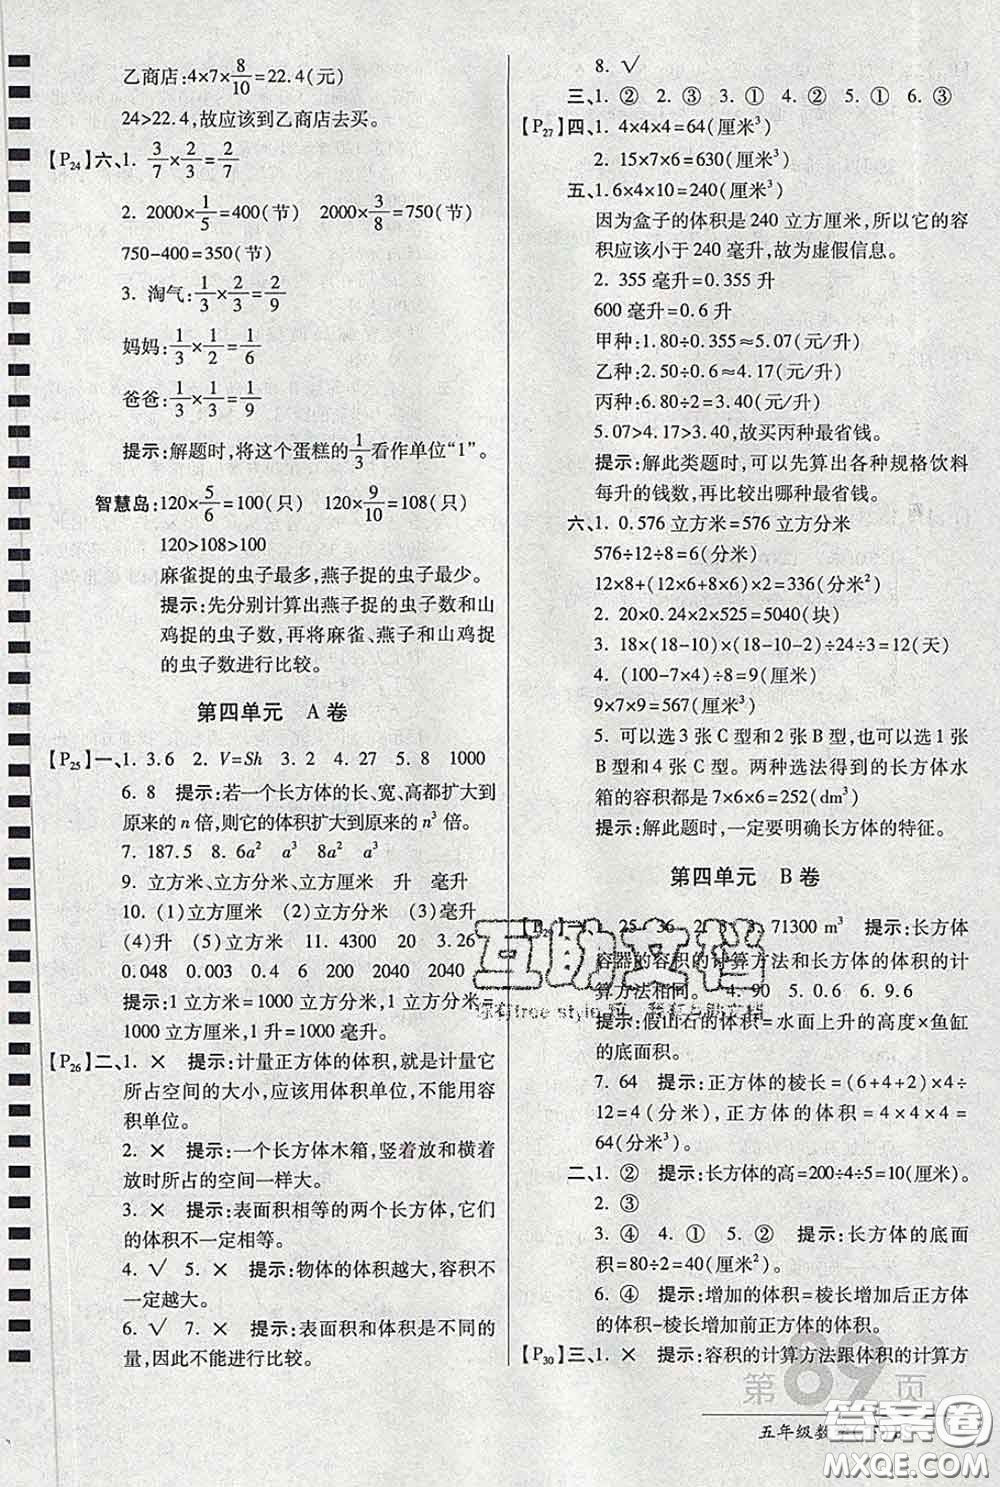 乙商店:4×7×8/10=22.4(元)
24>22.4,故应该到乙商店去买。
【P24】六、1. 3/7×2/3=2/7
2. 2000×1/5=400(节) 2000×3/8=750(节)
750-400=350(节)
3. 淘气:1/3×2/3=2/9
妈妈:1/3×1/2=1/6
爸爸:1/3×1/3=1/9
提示:解题时,将这个蛋糕的1/3看作单位“1”。
智慧岛:120×5/6=100(只) 120×9/10=108(只)
120>108>100
麻雀捉的虫子最多,燕子捉的虫子最少。
提示:先分别计算出燕子捉的虫子数和山
鸡捉的虫子数,再将麻雀、燕子和山鸡捉
的虫子数进行比较。
第四单元 A卷
【P25】一、1. 3.6 2. V=Sh 3. 2 4. 27 5. 8 1000
6. 8 提示:若一个长方体的长、宽、高都扩大到
原来的n倍,则它的体积扩大到原来的n³倍。
7. 187.5 8. 6a² a³ 8a² a³
9. 立方米、立方分米、立方厘米 升 毫升
10. (1)立方厘米 (2)立方分米 (3)毫升
(4)升 (5)立方米 11. 4300 20 3.26
0.048 0.003 4.5 200 2040 2040
提示:1立方米=1000立方分米,1立方分米=
1000立方厘米,1升=1000毫升。
【P26】二、1. × 提示:计量正方体的体积,就是计量它
所占空间的大小,应该用体积单位,不能用容
积单位。
2. × 提示:一个长方体木箱,竖着放和横着
放时所占的空间一样大。
3. × 提示:表面积相等的两个长方体,它们
的体积不一定相等。
4. √ 5. × 提示:物体的体积越大,容积不
一定越大。
6. √ 7. × 提示:表面积和体积是不同的
量,因此不能进行比较。
8. √
三、1. ② 2. ③ 3. ① 4. ② 5. ① 6. ③
【P27】四、1. 4×4×4=64(厘米³)
2. 15×7×6=630(厘米³)
五、1. 6×4×10=240(厘米³)
因为盒子的体积是240立方厘米,所以它的容
积应该小于240毫升,故为虚假信息。
2. 355毫升=0.355升
600毫升=0.6升
甲种:1.80÷0.355≈5.07(元/升)
乙种:2.50÷0.6≈4.17(元/升)
丙种:6.80÷2=3.40(元/升)
5.07>4.17>3.40,故买丙种最省钱。
提示:解此类题时,可以先算出各种规格饮料
每升的钱数,再比较出哪种最省钱。
六、1. 0.576立方米=576立方分米
576÷12÷8=6(分米)
12×8+(12×6+8×6)×2=336(分米²)
2. 20×0.24×2×525=5040(块)
3. 18×(18-10)×(18-10-2)÷24÷3=12(天)
4. (100-7×4)÷8=9(厘米)
9×7×9=567(厘米³)
5. 可以选3张C型和2张B型,也可以选1张
B型和4张C型。两种选法所做的长方体水
箱的容积都是7×6×6=252(dm³)
提示:解此题时,一定要明确长方体的特征。
第四单元 B卷
25 36 71300 m³ 提示:长方体
容器的容积的计算方法和长方体的体积的计
算方法相同。 4. 90 5. 0.6 6. 9.6
提示:假山石的体积=水面上升的高度×鱼缸
的底面积。
7. 64 提示:正方体的棱长=(6+4+2)×4÷
12=4(分米),正方体的体积=4×4×4=
64(分米³)。
二、1. ② 提示:长方体的高=200÷4÷5=10(厘米)。
2. ③
3. ④ 4. ① 5. ② 提示:长方体的底面
积=80÷2=40(厘米²)。
6. ④ 提示:增加的体积=棱长增加后正方体
的体积-棱长增加前正方体的体积。
【P30】三、1. × 提示:容积的计算方法跟体积的计算方
第89页
五年级数学
互助文档
答案圈
MXQE.COM